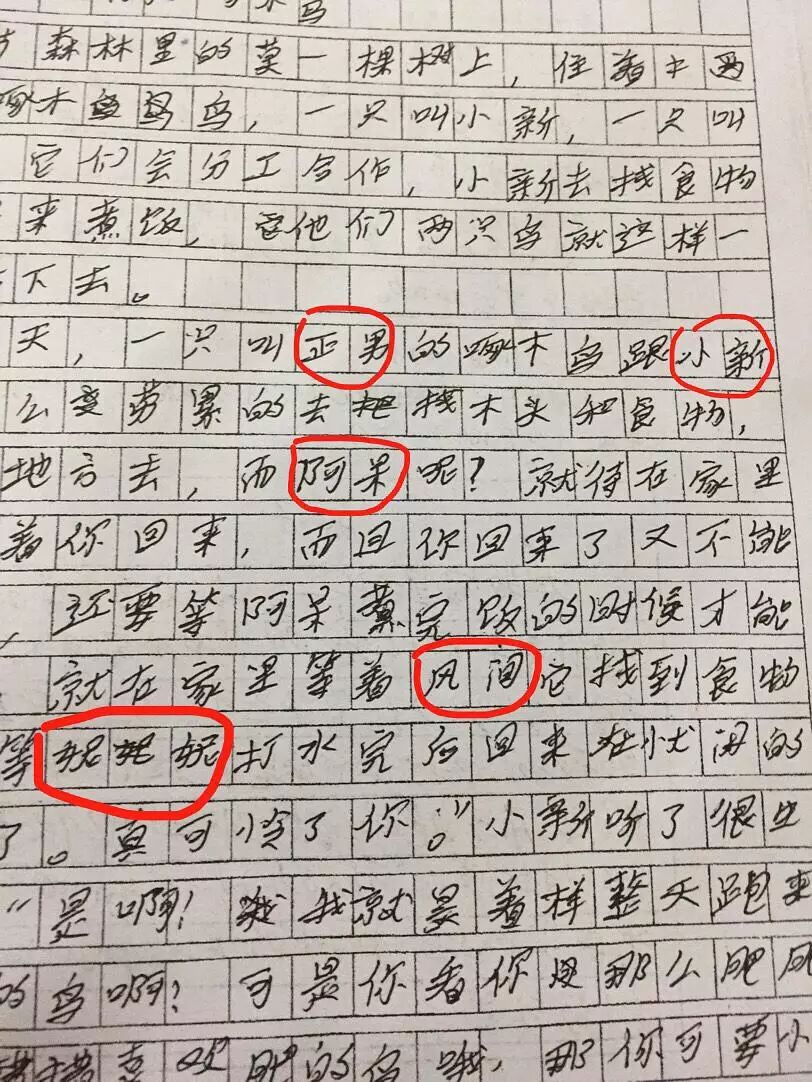 鸟
森林里的莫一棵树上，住着中两
啄木鸟鸟鸟，一只叫小新，一只叫
它们会分工合作，小新去找食物
来煮饭，它他们两只鸟就这样一
下去。
天，一只叫正男的啄木鸟跟小新
么变劳累的去把找木头和食物，
地方去，而阿呆呢？就待在家里
着你回来，而且你回来了又不能
，还要等阿呆煮完饭的时候才能
就在家里等着风间它找到食物
等妮妮妮打水完后回来在忧闲的
了。真可怜了你。”小新听了很生
“是啊！我我就是着样整天跑来
的鸟啊？可是你看你没那么肥
煮 肥的鸟哦，那你可要小